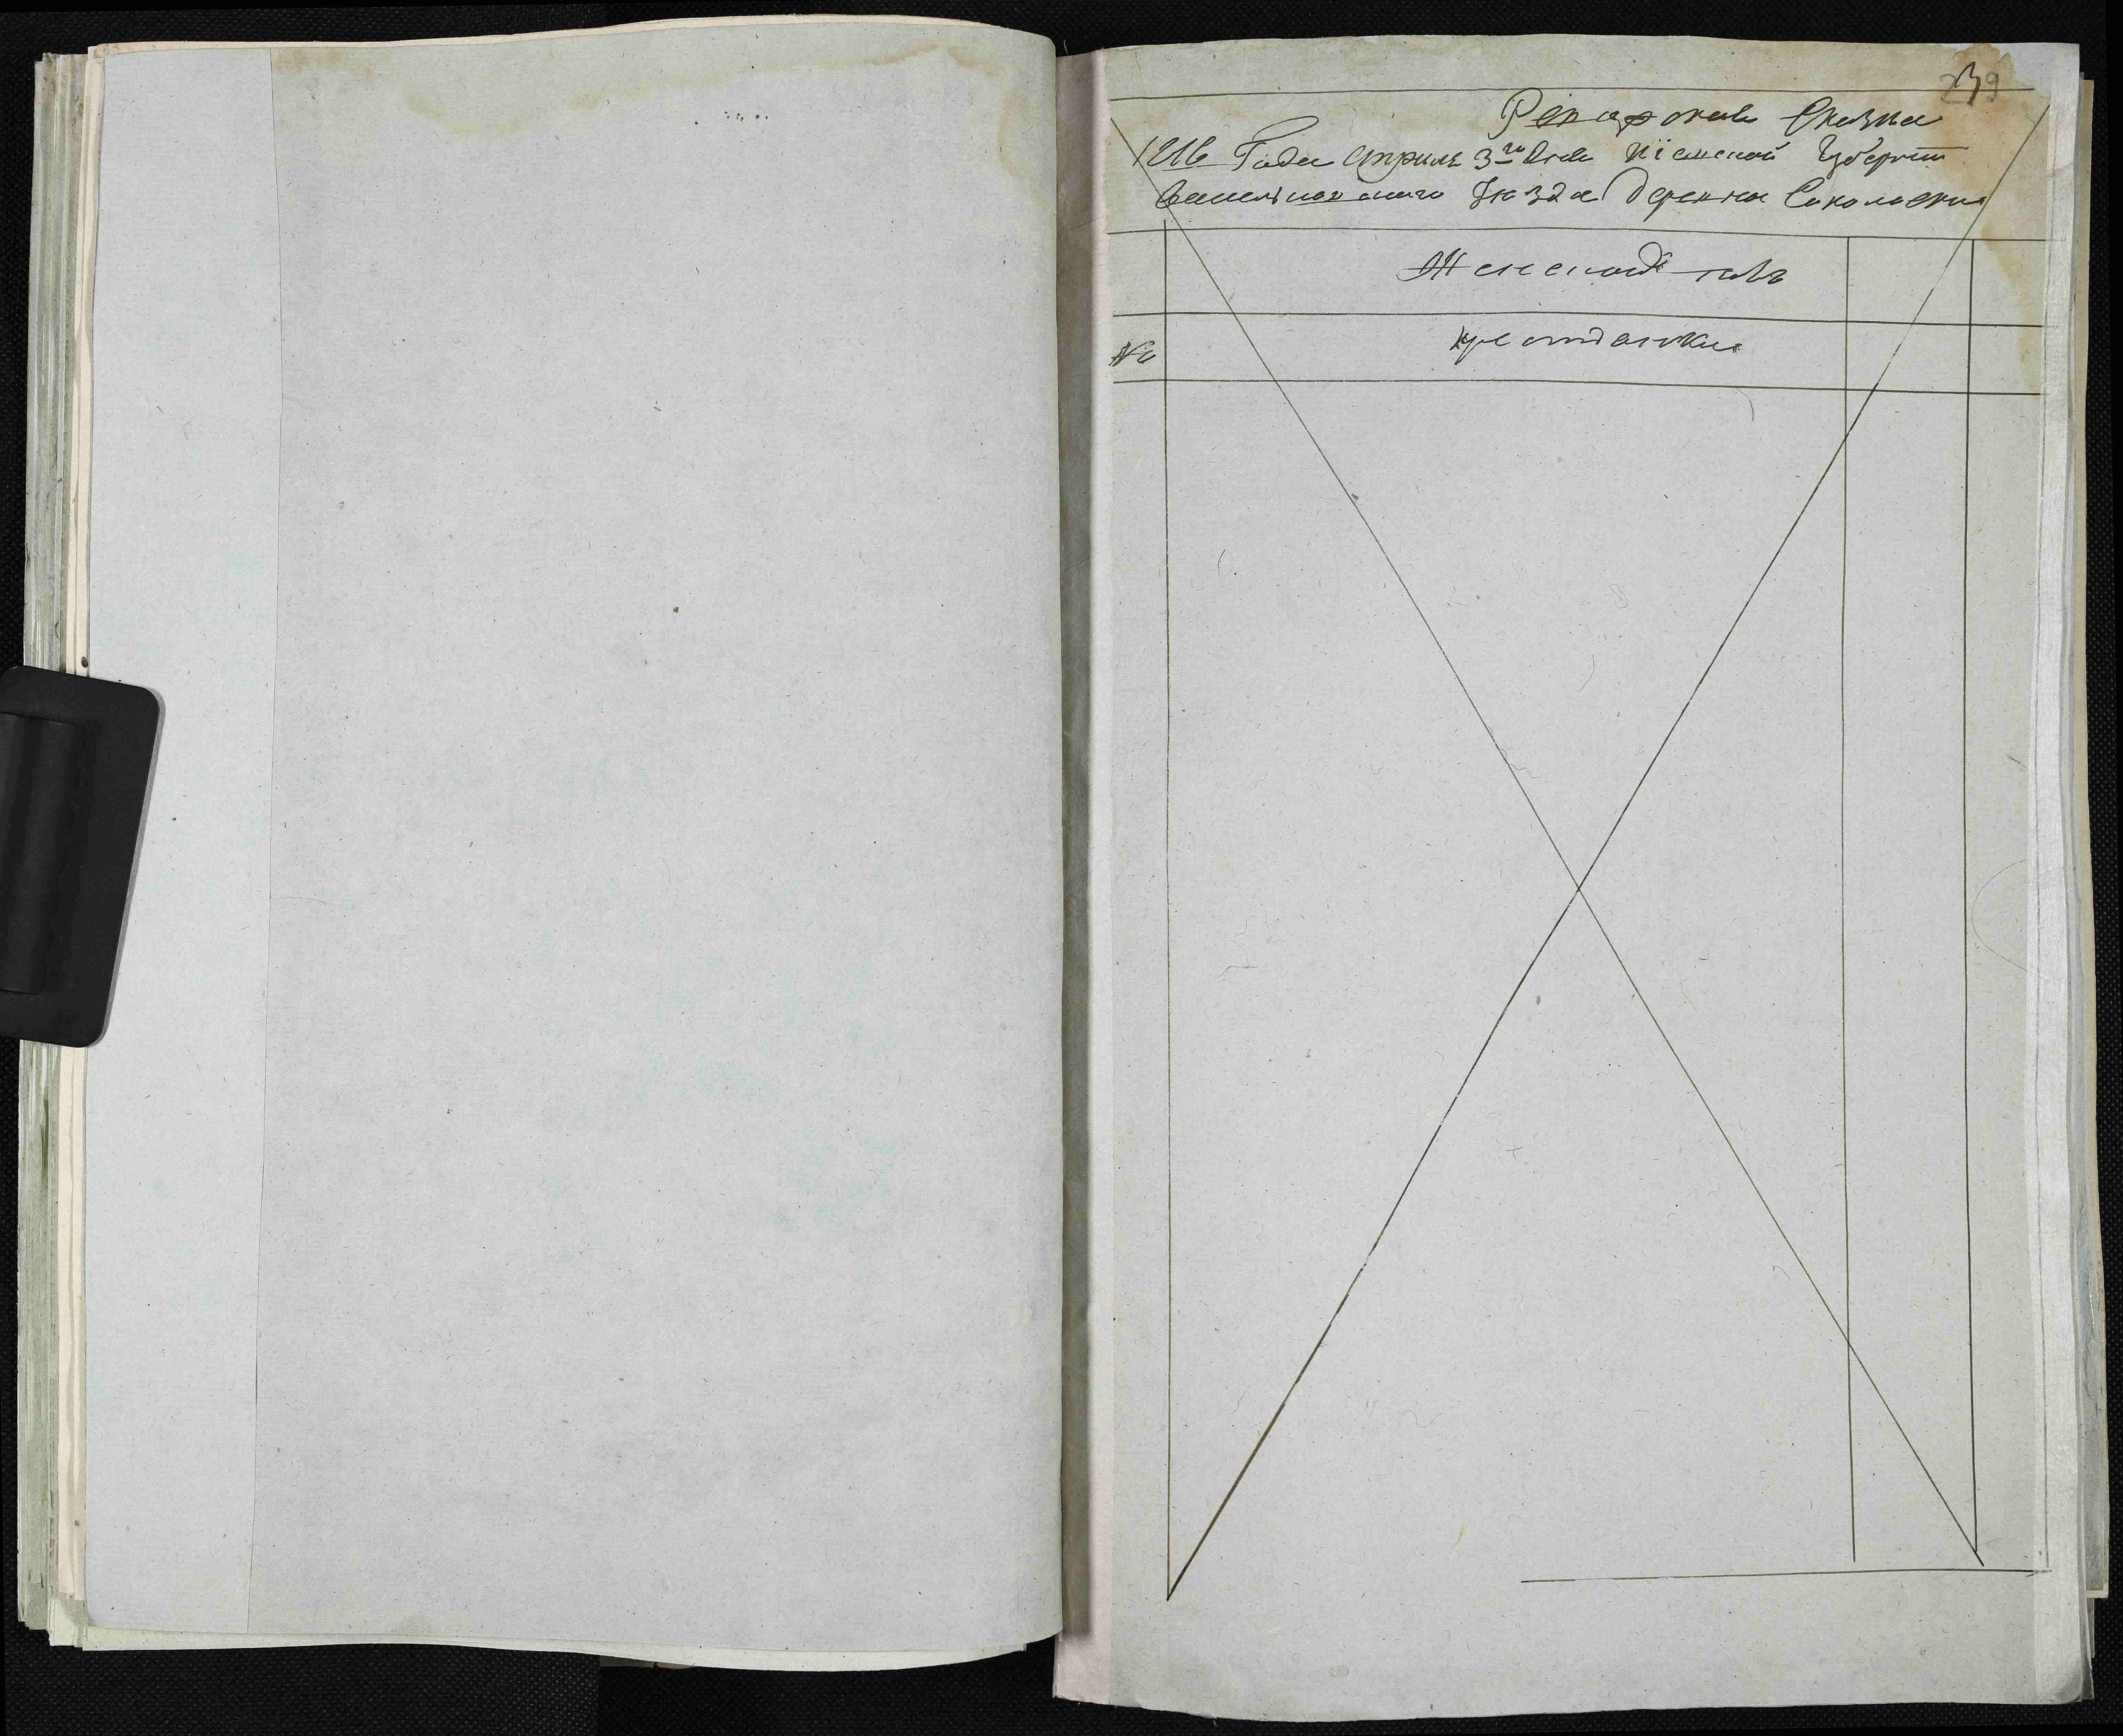 239
Ревизская Сказка
1816 Года априля 3го дня Кіевской Губерніи
Васильковского Уезда деревни Соколовки
Женской полъ
№
крестьянки